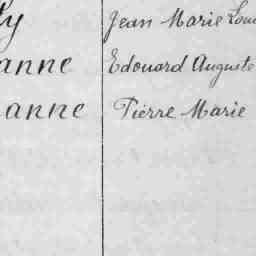 ly Jean Marie Loui
anne Edouard Auguste
anne Pierre Marie